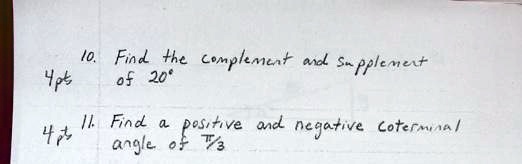 10. Find the complement and Supplement
4pts of 20°
11. Find a positive and negative Coterminal
4pts angle of π/3